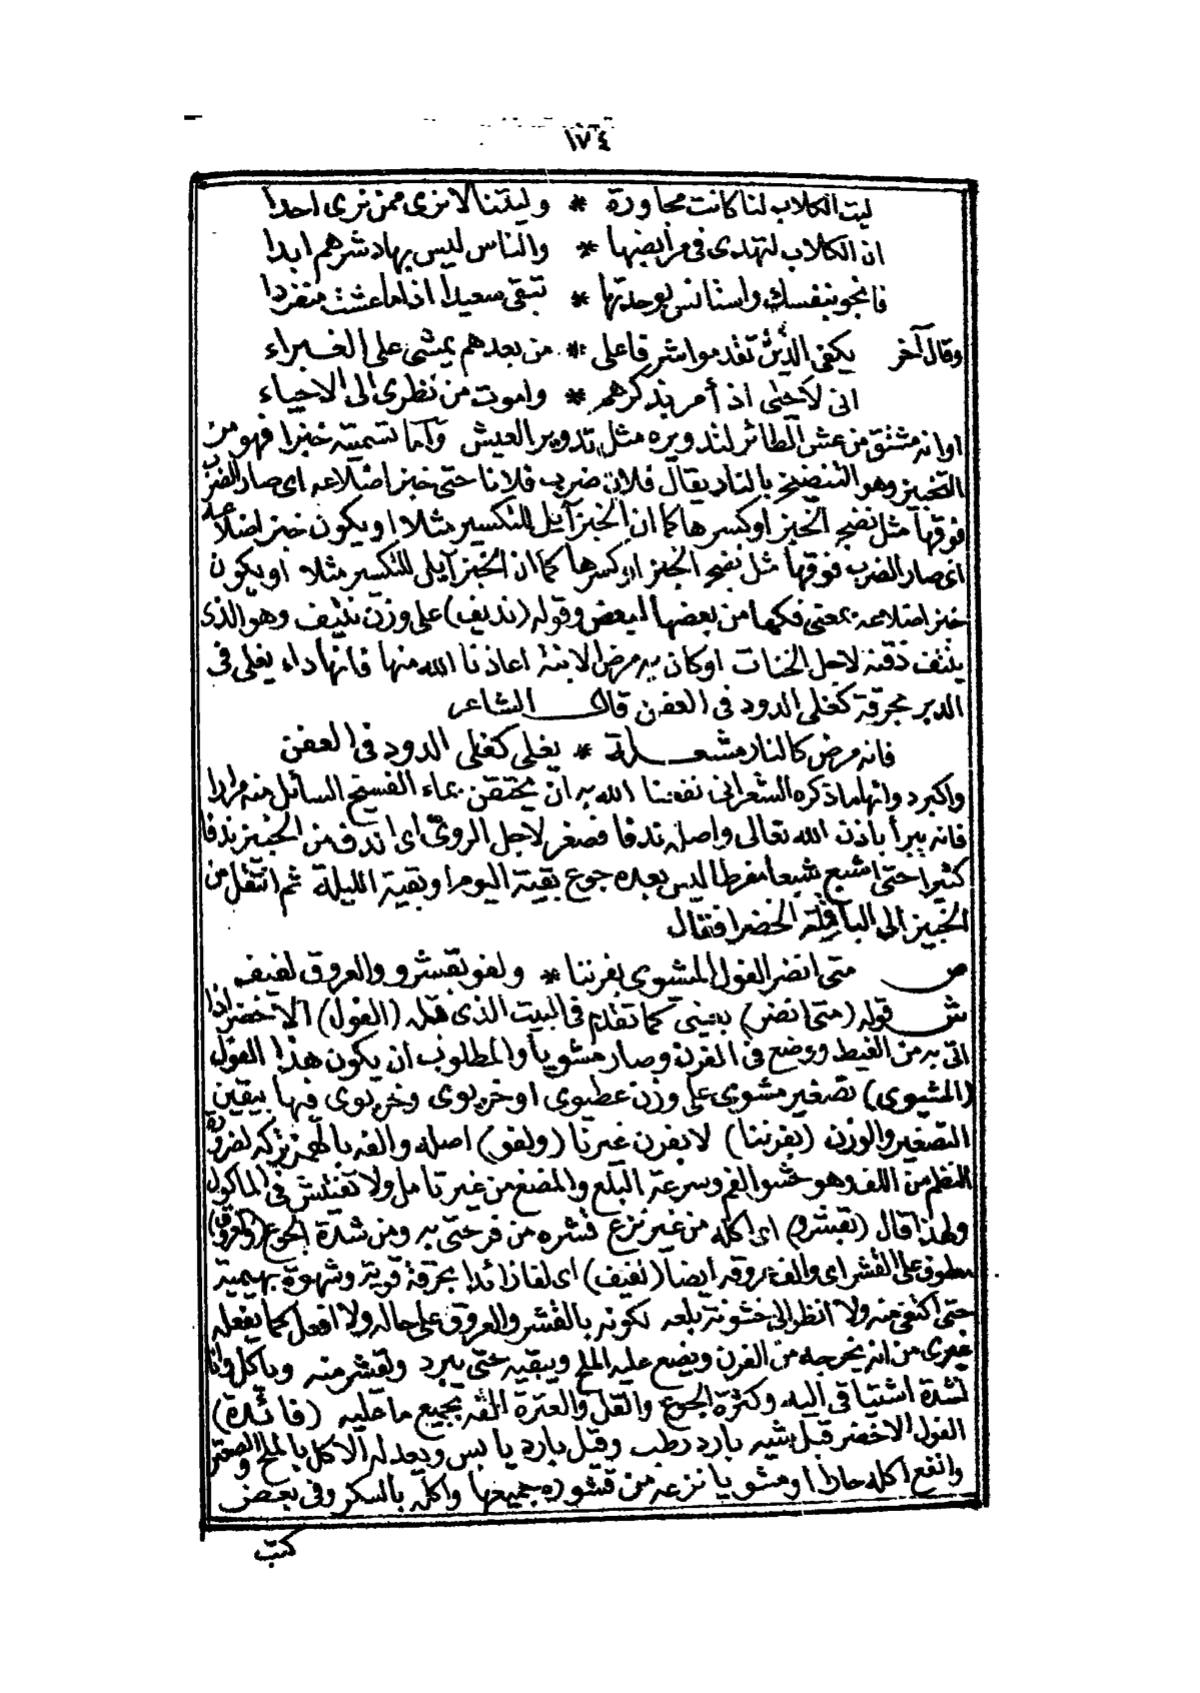 ١٧٤
ليت الكلاب لنا كانت مجاورة * وليتنا لا نرى ممن نرى احدا
ان الكلاب لتهدى فى مرابضها * والناس ليس بهاد شرهم ابدا
فانجو بنفسك واستانس بوحدتها * تبقى سعيدا اذا ما عشت منفردا
وقال آخر يكفى الذين تقدموا شرفا على * من بعدهم يمشى على الغبراء
انى لأحيى اذ أمر بذكرهم * واموت من نظرى الى الاحياء
اوانه مشتق من عش الطائر لتدويره مثل تدوير العيش وآما تسميته خبزا فهو من
التخبيز وهو التنضيج بالنار يقال فلان ضرب فلانا حتى خبز اضلاعه اى صار الضرب
فوقها مثل نضج الخبز اوكسرها كما ان الخبز آيل للتكسير مثلا او يكون خبز اضلاعه
اى صار الضرب فوقها مثل نضج الخبز اوكسرها كما ان الخبز آيلى للتكسير مثلا او يكون
خبز اضلاعه بمعنى فكها من بعضها لبعض وقوله (نديف) على وزن نتيف وهو الذى
ينتف ذقنه لاجل الخنات اوكان به مرض الابنة اعاذنا الله منها فانها داء يغلى فى
الدبر بحرقة كغلى الدود فى العفن قال الشاعر
فانه مرض كالنار مشعلة * يغلى كغلى الدود فى العفن
واكبر دوائها ما ذكره الشعرانى نفعنا الله به ان يحتقن بماء الفسيخ السائل منه مرارا
فانه يبرأ باذن الله تعالى واصله ندفا فصغر لاجل الروىّ اى اندف من الخبز ندفا
كثيرا حتى اشبع شبعا مفرطا ليس بعده جوع بقية اليوم او بقية الليلة ثم انتقل من
الخبيز الى الباقلة الخضرا فقال
ص متى انضر الفول المشوى بفرننا * ولفو بقشرو والعروق لفيف
ش قوله (متى انضر) بعينى كما تقدم فى البيت الذى قبله (الفول) الاخضر اذا
اتى به من الغيط ووضع فى الفرن وصار مشويا والمطلوب ان يكون هذا الفول
(المشيوى) تصغير مشوى على وزن عطيوى او خريوى وخريوى فيها بيقين
التصغير والوزن (بفرننا) لا بفرن غيرنا (ولفو) اصله والفه بالهمز تركه لضرورة
النظم من اللف وهو حشو الفم وسرعة البلع والمضغ من غير تامل ولا تفتيش فى المأكول
ولهذا قال (بقشرو) اى اكله من غير نزع قشره من فرحتى به ومن شدة الجوع (والعروق)
معطوف على القشر اى والفه بعروقه ايضا (لفيف) اى لفا زائدا بحرقة قوية وشهوة بهيمية
حتى اكتفى منه ولا انظر الى خشونة بلعه لكونه بالقشر والعروق على حاله ولا افعل كما يفعله
غيرى من انه يخرجه من الفرن ويضع عليه الملح ويبقيه حتى يبرد ولقشر منه وياكل وانا
لشدة اشتياقى اليه وكثرة الجوع والقل والعترة الفه بجميع ما عليه (فائدة)
الفول الاخضر قبل شيه بارد رطب وقيل بارد يابس وبعد له الاكل بالملح والصعتر
وانفع اكله حارا او مشويا نزعه من قشوره جميعها واكله بالسكر وفى بعض
كتب